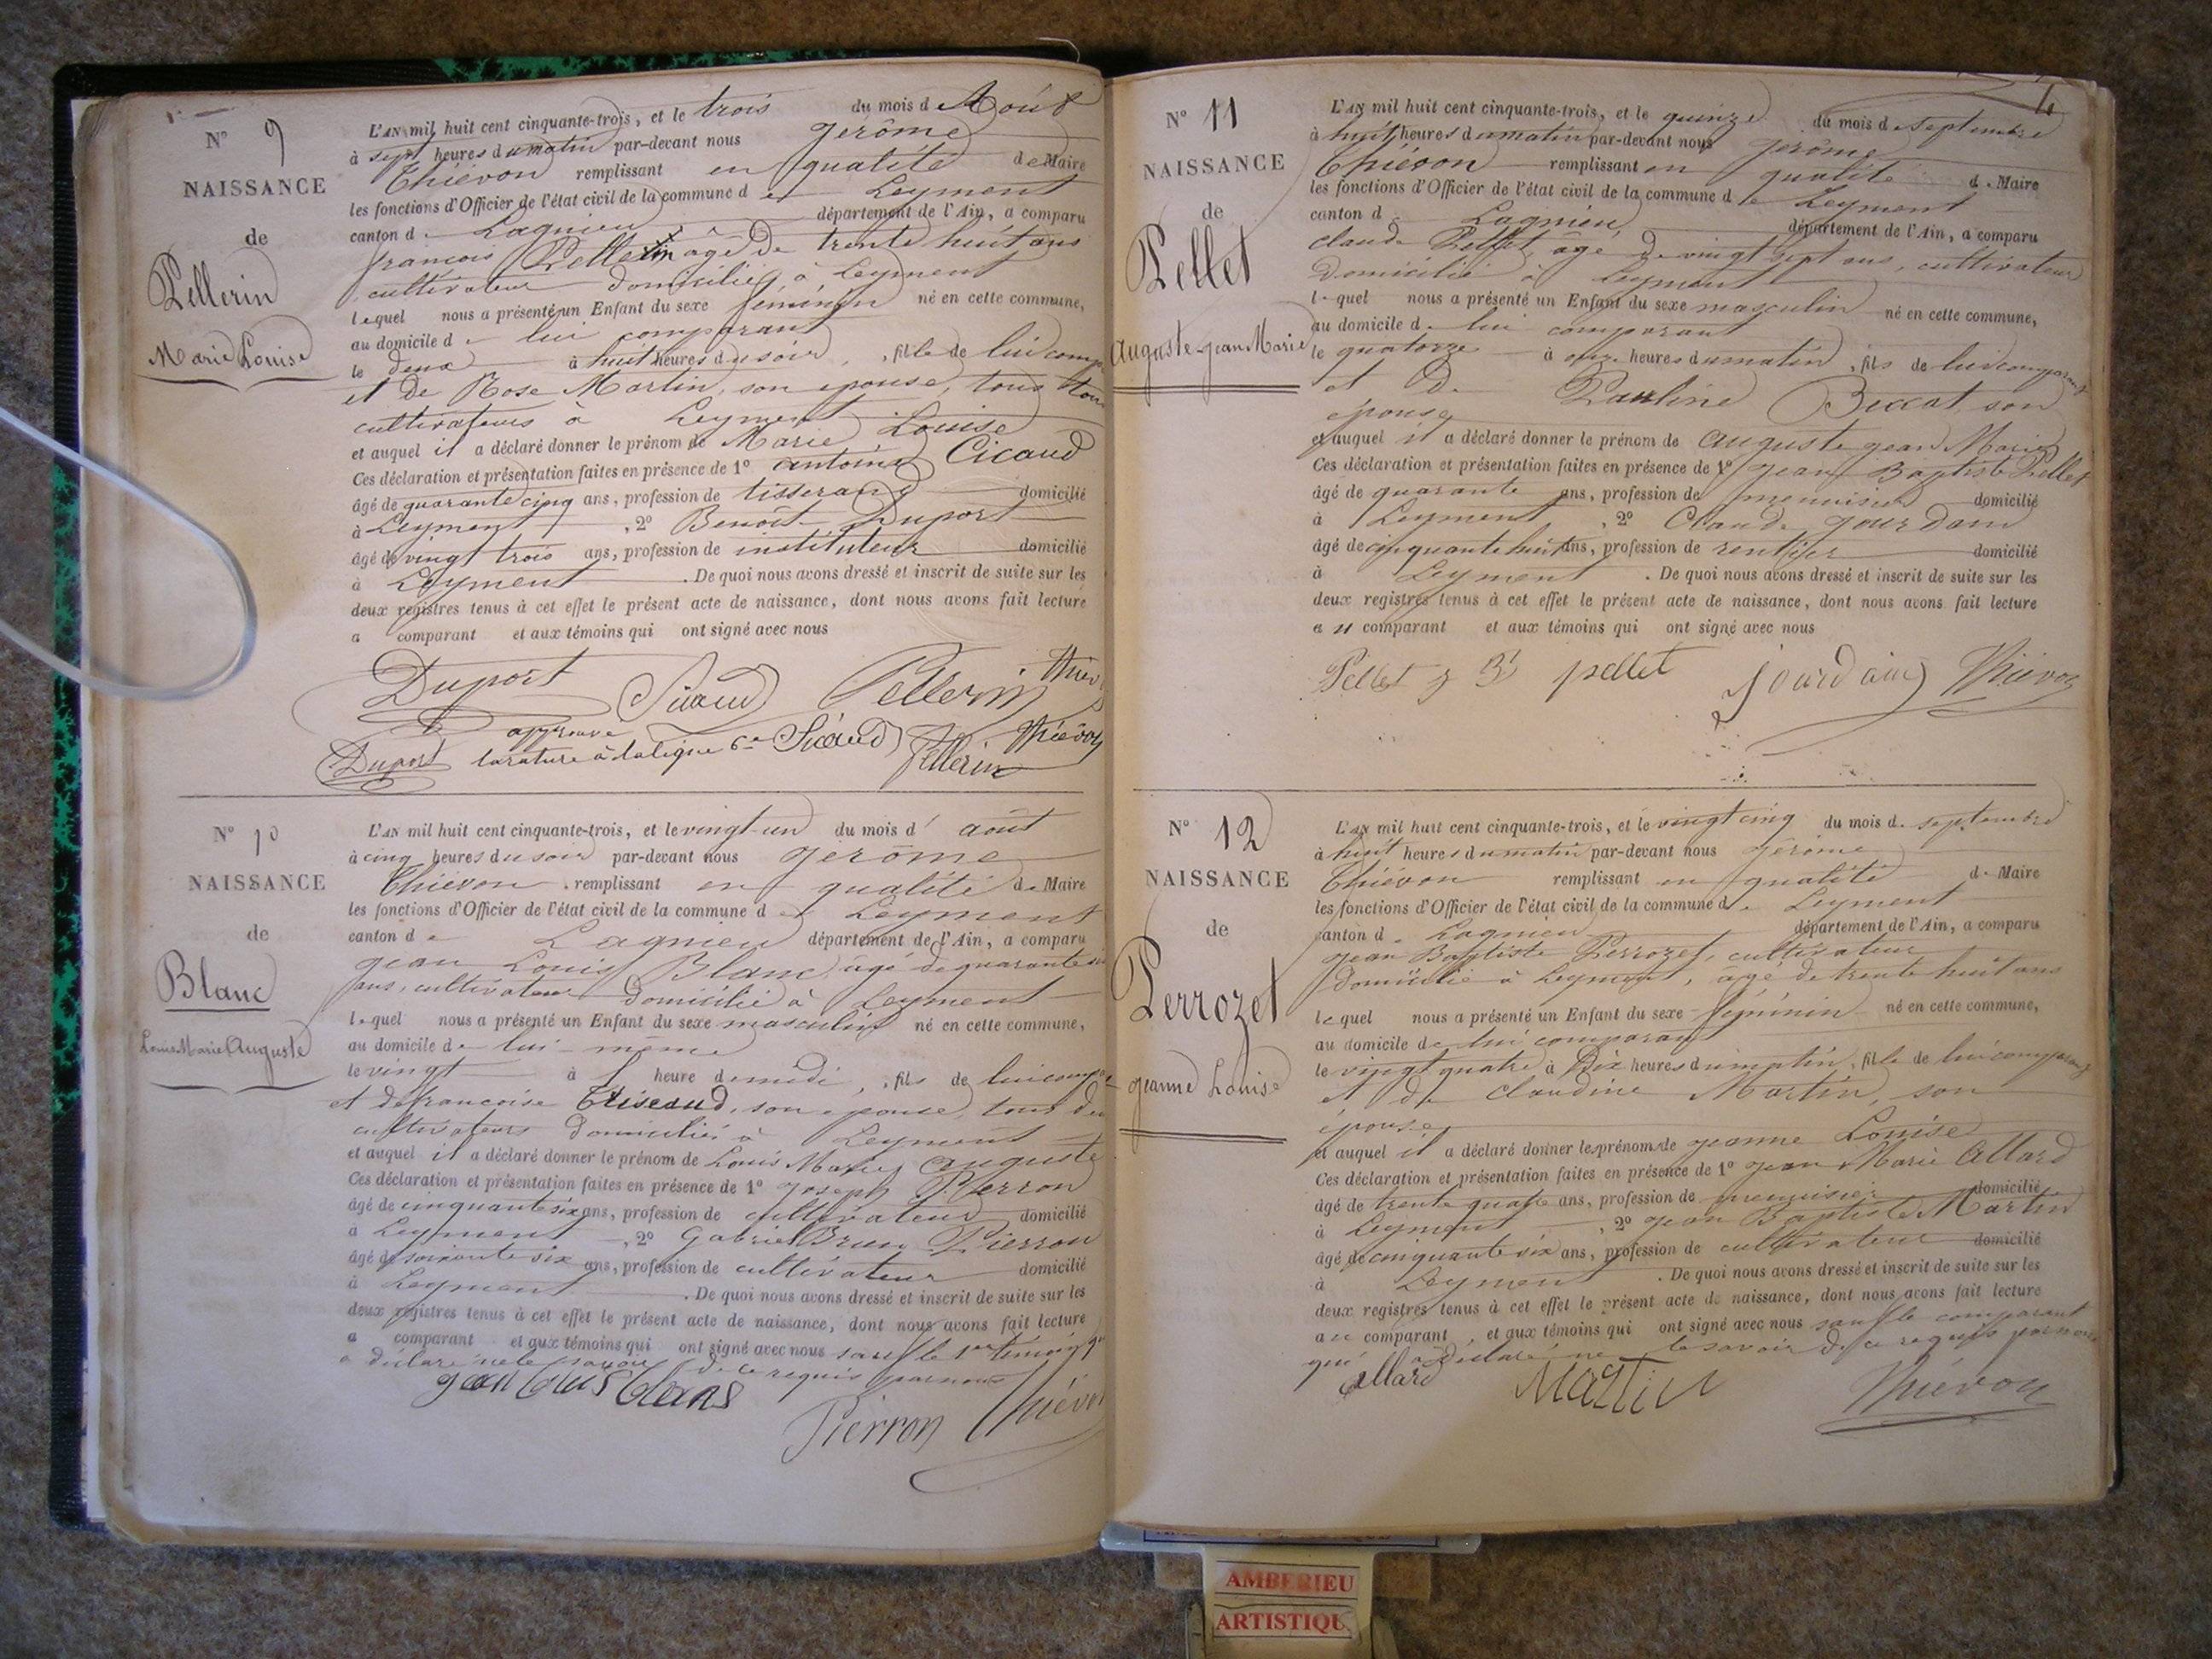 N° 9
NAISSANCE
de
Pellerin
Marie Louise
L'AN mil huit cent cinquante-trois, et le trois du mois d Août
à sept heures du matin par-devant nous jerôme
Thiévon remplissant en qualité de Maire
les fonctions d'Officier de l'état civil de la commune d e Leyment
canton d e Lagnieu département de l'Ain, a comparu
francois Pellerin agé De trente huit ans
cultivateur domicilié à Leyment
lequel nous a présenté un Enfant du sexe féminin né en cette commune,
au domicile d e lui comparant
le deux à huit heures du soir, fille de lui comp
et de Rose Martin, son epouse, tous
cultivateurs à Leyment
et auquel il a déclaré donner le prénom de Marie Louise
Ces déclaration et présentation faites en présence de 1° antoine Cicaud
âgé de quarante cinq ans, profession de tisserand domicilié
à Leyment, 2° Benoît Duport
âgé de vingt trois ans, profession de instituteur domicilié
à Leyment. De quoi nous avons dressé et inscrit de suite sur les
deux registres tenus à cet effet le présent acte de naissance, dont nous avons fait lecture
a comparant et aux témoins qui ont signé avec nous
Duport Sicaud Pellerin Thiev
approuvé
Duport la rature à la ligne 6e Sicaud Pellerin Thiévon
N° 10
NAISSANCE
de
Blanc
Louis Marie Auguste
L'AN mil huit cent cinquante-trois, et le vingt-un du mois d' août
à cinq heures du soir par-devant nous jerôme
Thiévon remplissant en qualité de Maire
les fonctions d'Officier de l'état civil de la commune d e Leyment
canton d e Lagnieu département de l'Ain, a comparu
jean Louis Blanc, âgé de quarante
ans, cultivateur domicilié à Leyment
lequel nous a présenté un Enfant du sexe masculin né en cette commune,
au domicile de lui-même
le vingt à heure de midi, fils de lui comp
et de francoise, son epouse, tous
cultivateurs domiciliés à Leyment
et auquel il a déclaré donner le prénom de Louis Marie auguste
Ces déclaration et présentation faites en présence de 1° joseph Pierron
âgé de cinquante six ans, profession de cultivateur domicilié
à Leyment, 2° Gabriel Brun Pierron
âgé de soixante six ans, profession de cultivateur domicilié
à Leyment. De quoi nous avons dressé et inscrit de suite sur les
deux registres tenus à cet effet le présent acte de naissance, dont nous avons fait lecture
a comparant et aux témoins qui ont signé avec nous sauf le 1er témoin q
a déclaré ne le savoir de ce requis par nous
jean Blans
Pierron Thiévon
N° 11
NAISSANCE
de
Pellet
Auguste jean Marie
L'AN mil huit cent cinquante-trois, et le quinze du mois de septembre
à huit heures du matin par-devant nous jerôme
Thiévon remplissant en qualité de Maire
les fonctions d'Officier de l'état civil de la commune d e Leyment
canton d e Lagnieu département de l'Ain, a comparu
claude Pellet, agé de vingt sept ans, cultivateur
domicilié à Leyment
lequel nous a présenté un Enfant du sexe masculin né en cette commune,
au domicile de lui comparant
le quatorze à onze heures du matin, fils de lui comparant
et De Pauline Beccat, son
épouse
et auquel il a déclaré donner le prénom de auguste jean Marie
Ces déclaration et présentation faites en présence de 1° jean Baptiste Pellet
âgé de quarante ans, profession de menuisier domicilié
à Leyment, 2° Claude jourdain
âgé de cinquante huit ans, profession de rentier domicilié
à Leyment. De quoi nous avons dressé et inscrit de suite sur les
deux registres tenus à cet effet le présent acte de naissance, dont nous avons fait lecture
au comparant et aux témoins qui ont signé avec nous
Pellet j Bt pellet jourdain Thiévon
N° 12
NAISSANCE
de
Perrozet
jeanne Louise
L'AN mil huit cent cinquante-trois, et le vingt cinq du mois de septembre
à huit heures du matin par-devant nous jerôme
Thiévon remplissant en qualité de Maire
les fonctions d'Officier de l'état civil de la commune d e Leyment
canton d e Lagnieu département de l'Ain, a comparu
jean Baptiste Perrozet, cultivateur
domicilié à Leyment, âgé de trente huit ans
lequel nous a présenté un Enfant du sexe féminin né en cette commune,
au domicile de lui comparant
le vingt quatre à Dix heures du matin, fille de lui comparant
et de claudine Martin, son
épouse
et auquel il a déclaré donner les prénom de jeanne Louise
Ces déclaration et présentation faites en présence de 1° jean Marie Allard
âgé de trente quatre ans, profession de menuisier domicilié
à Leyment, 2° jean Baptiste Martin
âgé de cinquante six ans, profession de cultivateur domicilié
à Leyment. De quoi nous avons dressé et inscrit de suite sur les
deux registres tenus à cet effet le présent acte de naissance, dont nous avons fait lecture
a comparant, et aux témoins qui ont signé avec nous sauf le comparant
qui a déclaré ne le savoir de ce requis par nous
allard Martin Thiévon
AMBERIEU
ARTISTIQU